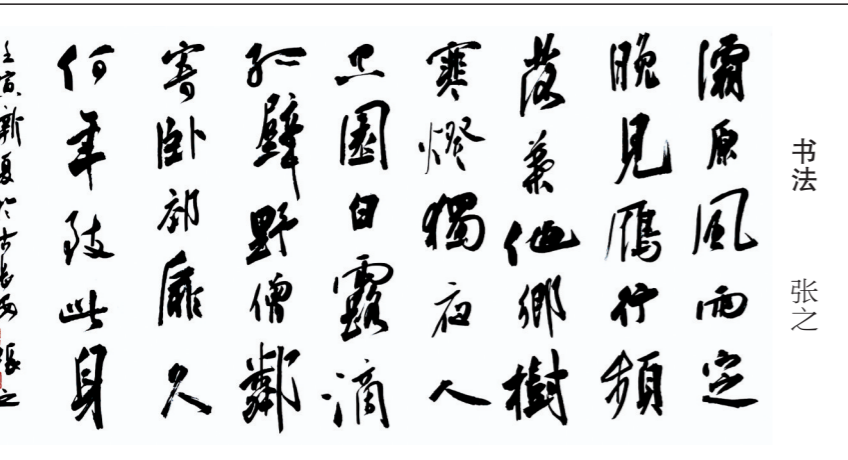 书法 张之
灞原风雨定
晚见雁行频
落葉他鄉樹
寒燈獨夜人
空園白露滴
孤壁野僧鄰
寄卧郊扉久
何年致此身
壬寅新夏於古長安 張之